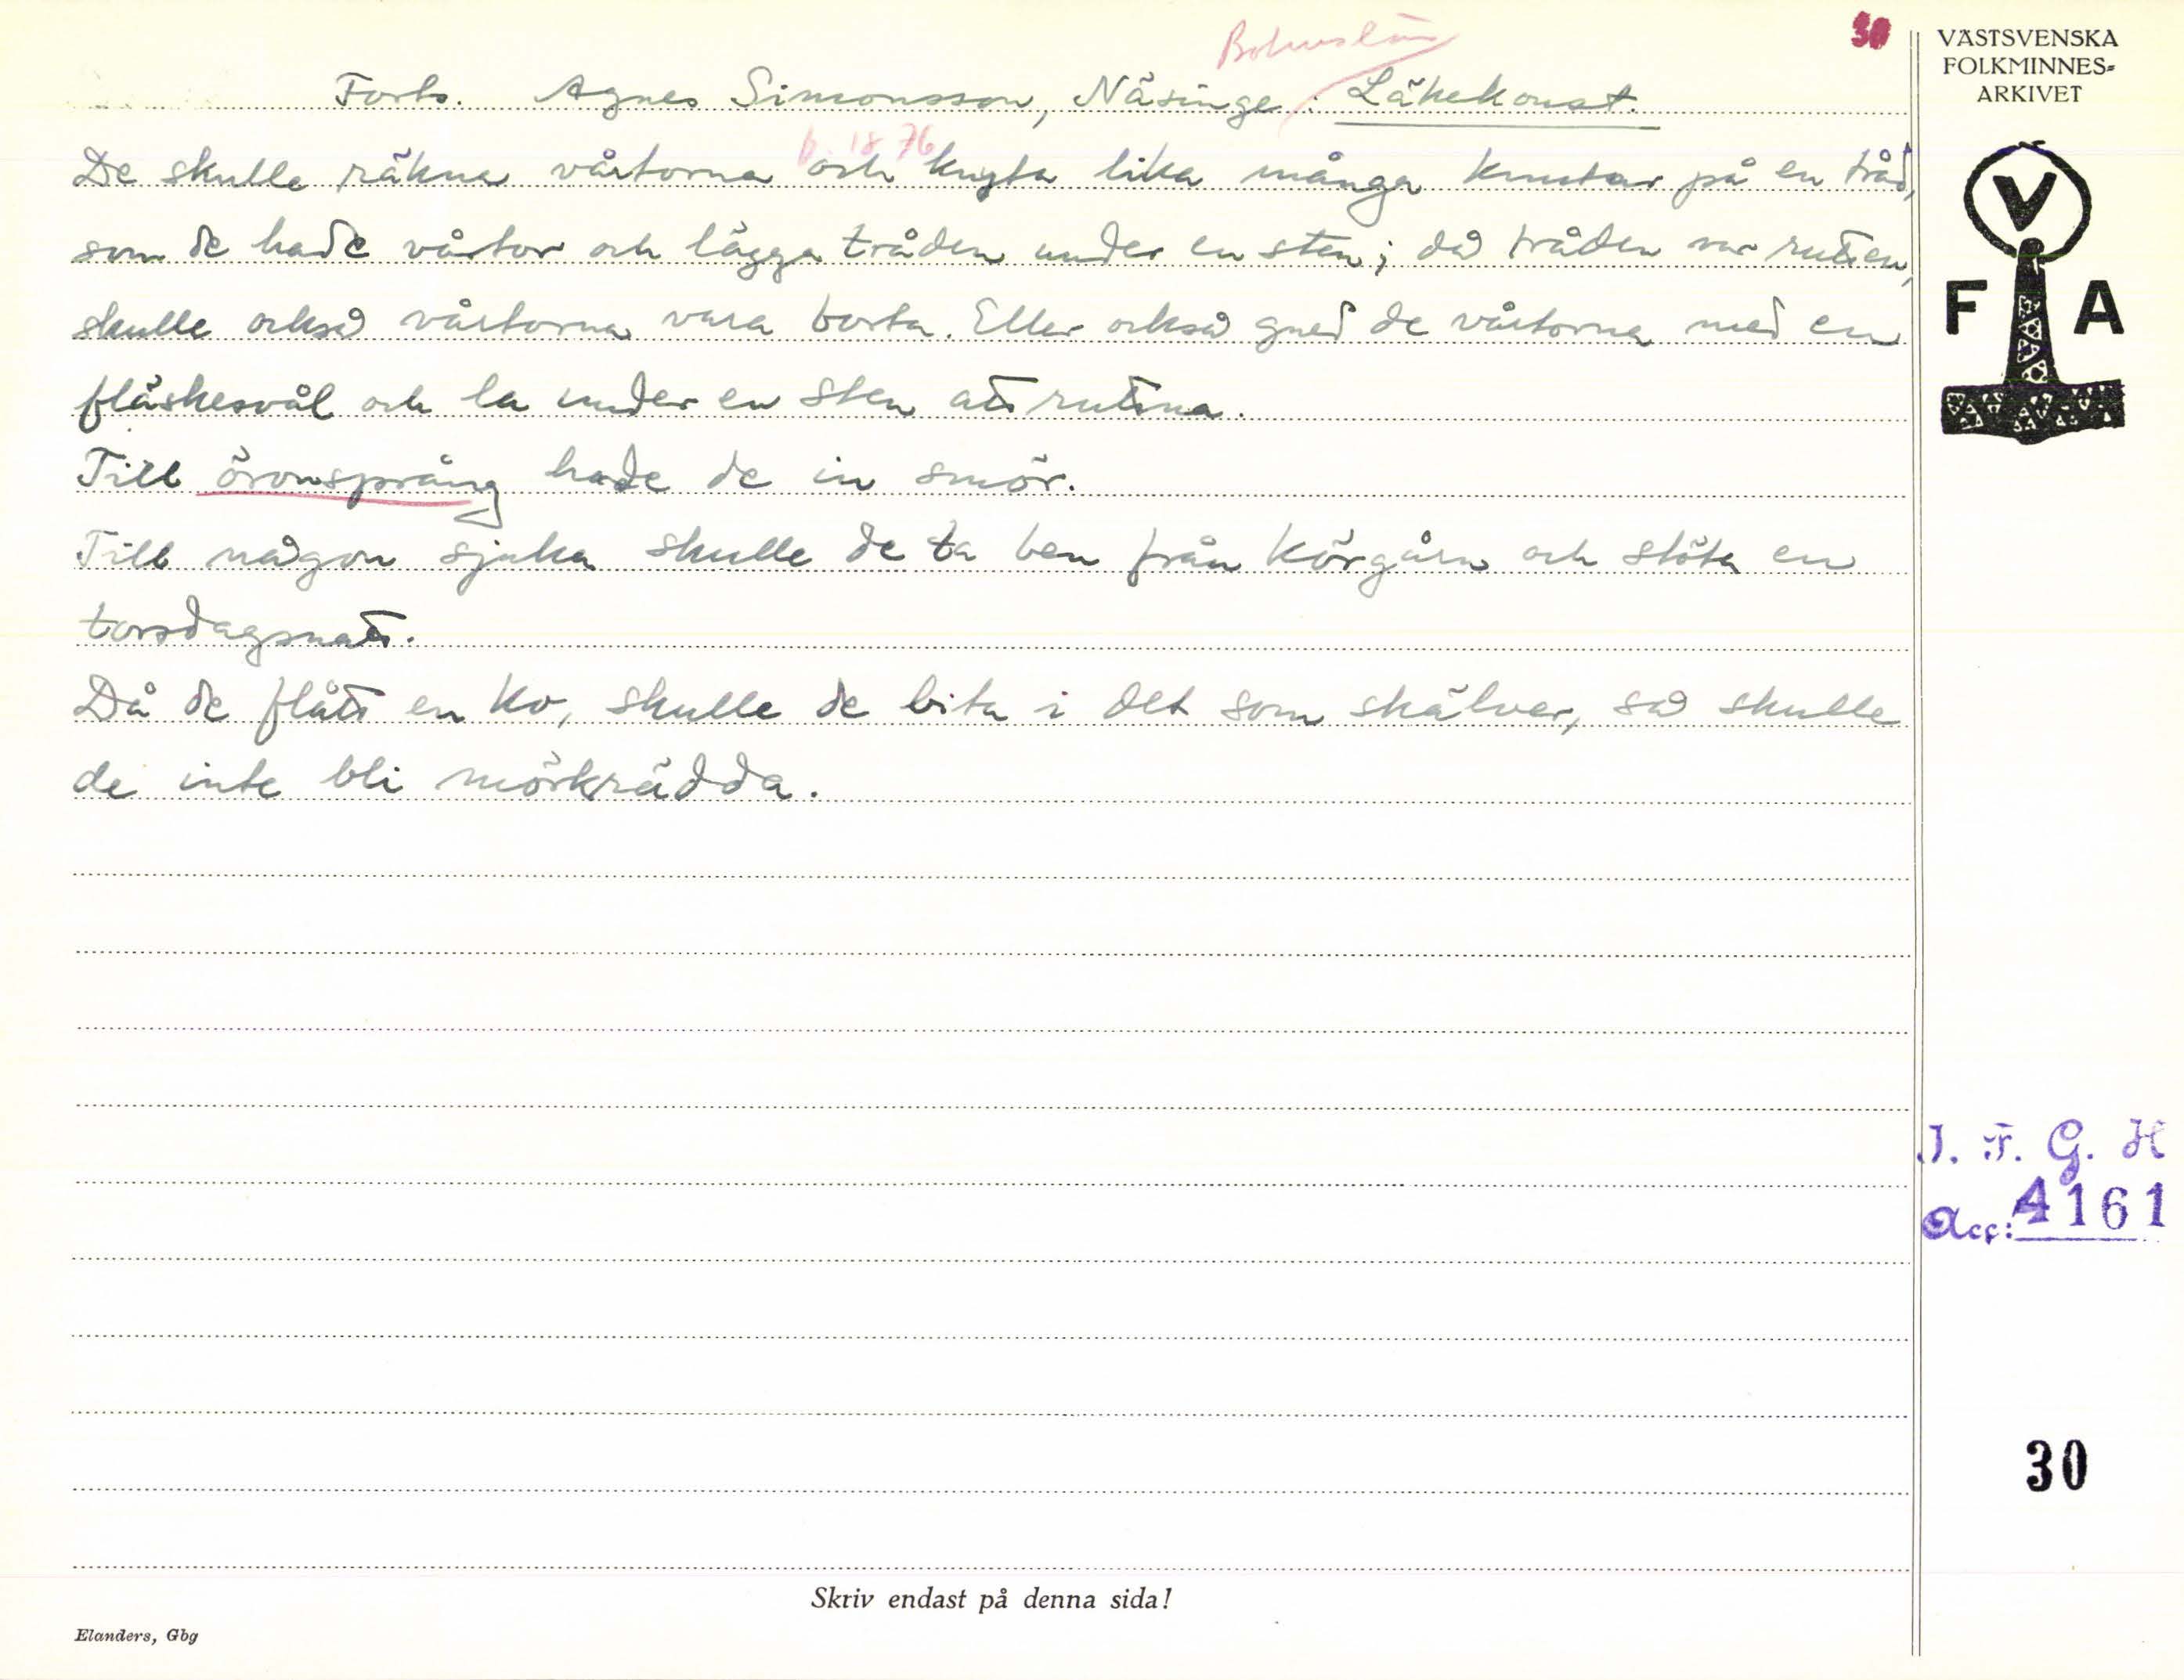 Bohuslän
30
Forts. Agnes Simonsson, Näsinge. Läkekonst.
b. 1876
De skulle räkna vårtorna och knyta lika många knutar på en tråd,
som de hade vårtor och lägga tråden under en sten; då tråden var rutten,
skulle också vårtorna vara borta. Eller också gned de vårtorna med en
fläskesvål och la under en sten att ruttna.
Till öronsprång hade de in smör.
Till någon sjuka skulle de ta ben från körgårn och stöta en
torsdagsnatt.
Då de flått en ko, skulle de bita i det som skälver, så skulle
de inte bli mörkrädda.
VÄSTSVENSKA
FOLKMINNES=
ARKIVET
V
F A
I. F. G. H
Acc: 4161
30
Skriv endast på denna sida!
Elanders, Gbg